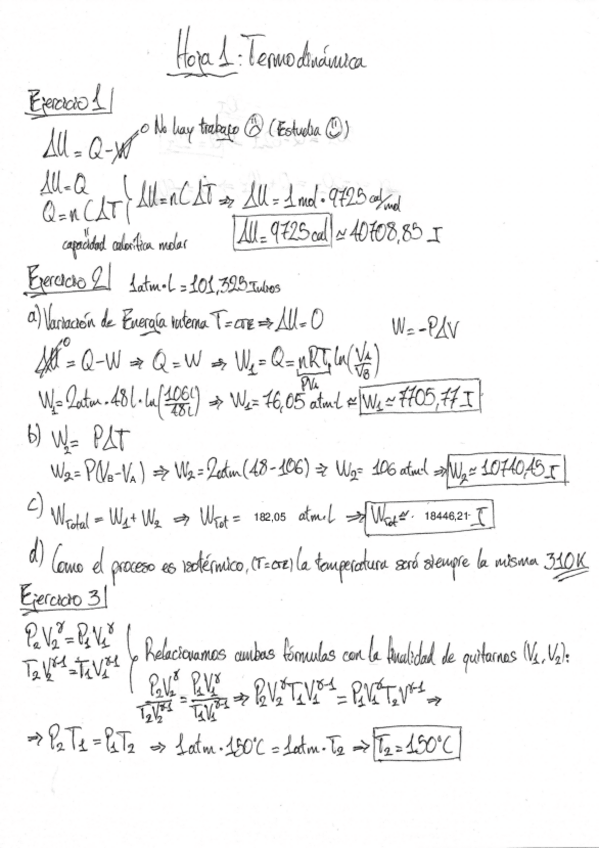 Hoja 1: Termodinámica
Ejercicio 1
ΔU = Q - W 0 No hay trabajo ☹ (Estudia ☺)
ΔU = Q
Q = nCΔT } ΔU = nCΔT ⇒ ΔU = 1 mol · 9725 cal/mol
capacidad calorífica molar ΔU = 9725 cal ≃ 40708,85 J
Ejercicio 2 1 atm·L = 101,325 Julios
a) Variación de Energía interna T = CTE ⇒ ΔU = 0 W = -PΔV
ΔU 0 = Q - W ⇒ Q = W ⇒ W₁ = Q = nRT₁ ln(V_A/V_B)
PV_A
W₁ = 2atm · 48l · ln(106l/48l) ⇒ W₁ = 76,05 atm·l ≃ W₁ ≃ 7705,77 J
b) W₂ = PΔT
W₂ = P(V_B - V_A) ⇒ W₂ = 2atm (48 - 106) ⇒ W₂ = 106 atm·l ⇒ W₂ ≃ 10740,45 J
c) W_Total = W₁ + W₂ ⇒ W_tot = 182,05 atm·L ⇒ W_tot ≃ 18446,21 J
d) Como el proceso es isotérmico, (T = CTE) la temperatura será siempre la misma 310K
Ejercicio 3
P₂V₂^γ = P₁V₁^γ
T₂V₂^γ-1 = T₁V₁^γ-1 } Relacionamos ambas fórmulas con la finalidad de quitarnos (V₁, V₂):
P₂V₂^γ/T₂V₂^γ-1 = P₁V₁^γ/T₁V₁^γ-1 ⇒ P₂V₂^γT₁V₁^γ-1 = P₁V₁^γT₂V^γ-1 ⇒
⇒ P₂T₁ = P₁T₂ ⇒ 1atm · 150°C = 1atm · T₂ ⇒ T₂ = 150°C